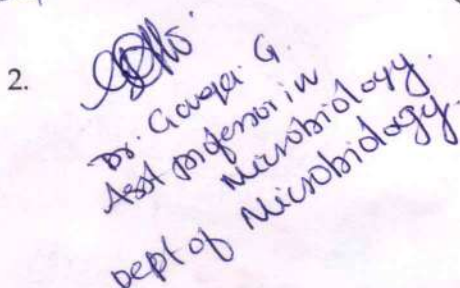 2.
Dr. Gowri G.
Asst professor in
Microbiology.
Dept of Microbiology.